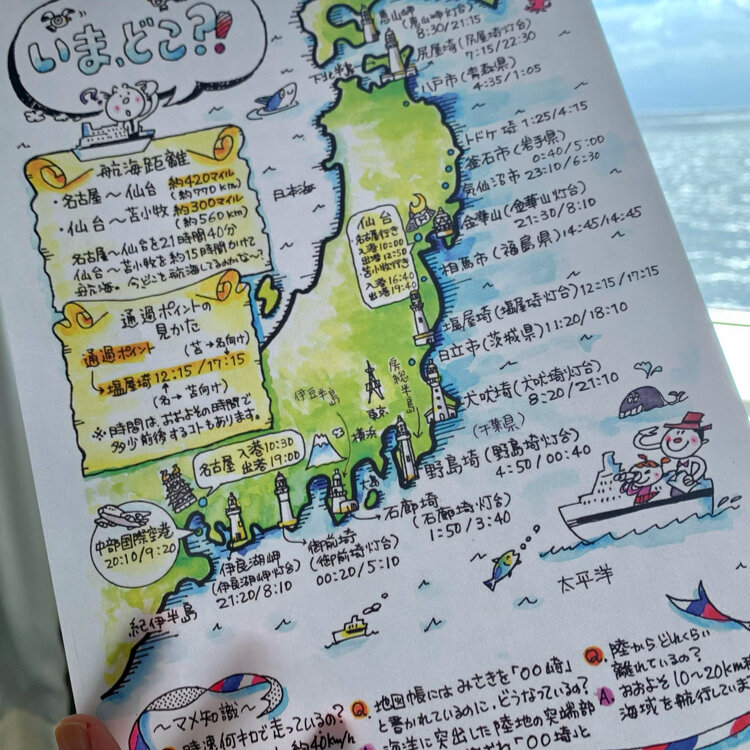 いま、どこ??
恵山岬
(恵山岬灯台)
8:30/21:15
尻屋埼(尻屋埼灯台)
7:15/22:30
下北半島
八戸市(青森県)
4:35/1:05
航海距離
・名古屋〜仙台 約420マイル
(約770km)
・仙台〜苫小牧 約300マイル
(約560km)
名古屋〜仙台を21時間40分
仙台〜苫小牧を約15時間かけて
航海。今どこを航海してるかな〜?
日本海
トドケ埼 1:25/4:15
釜石市(岩手県)
0:40/5:00
気仙沼市 23:10/6:30
金華山(金華山灯台)
21:30/8:10
相馬市(福島県)14:45/14:45
仙台
名古屋行き
入港10:00
出港12:50
苫小牧行き
入港16:40
出港19:40
通過ポイントの
見かた
通過ポイント
(苫→名向け)
→塩屋埼 12:15/17:15
(名→苫向け)
※時間は、おおよその時間で
多少前後するコトもあります。
塩屋埼(塩屋埼灯台)12:15/17:15
日立市(茨城県)11:20/18:10
犬吠埼(犬吠埼灯台)
8:20/21:10
(千葉県)
野島埼(野島埼灯台)
4:50/00:40
伊豆半島
東京
房総半島
横浜
大島
名古屋 入港10:30
出港19:00
石廊埼
(石廊埼灯台)
1:50/3:40
御前埼
(御前埼灯台)
00:20/5:10
中部国際空港
20:10/9:20
伊良湖岬
(伊良湖岬灯台)
21:20/8:10
紀伊半島
太平洋
〜マメ知識〜
時速何キロで走っているの?
約40km/h
Q. 地図帳にはみさきを「○○崎」
と書かれているのに、どうなっている?
海洋に突出した陸地の突端部
「○○埼」と
Q. 陸からどんくらい
離れているの?
A. おおよそ10〜20km
海域を航行していま